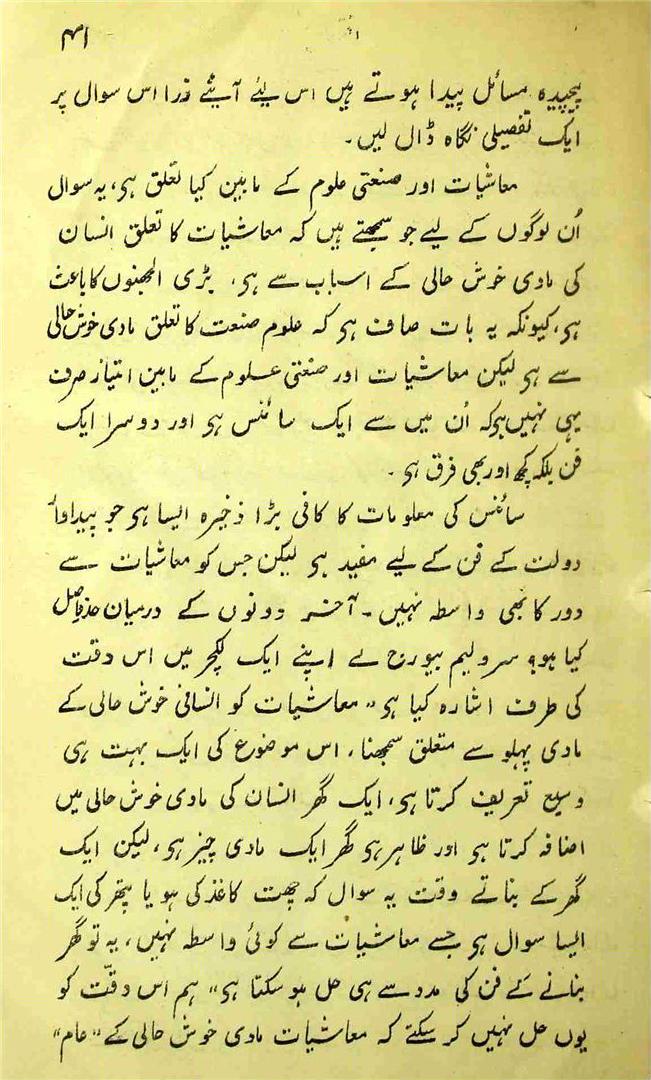 ۴۱
پیچیدہ مسائل پیدا ہوتے ہیں اس لیئے آیئے ذرا اس سوال پر
ایک تفصیلی نگاہ ڈال لیں۔
معاشیات اور صنعتی علوم کے مابین کیا تعلق ہی، یہ سوال
اُن لوگوں کے لیے جو سمجھتے ہیں کہ معاشیات کا تعلق انسان
کی مادی خوش حالی کے اسباب سے ہی، بڑی الجھنوں کا باعث
ہی، کیونکہ یہ بات صاف ہی کہ علوم صنعت کا تعلق مادی خوش حالی
سے ہی لیکن معاشیات اور صنعتی علوم کے مابین امتیاز صرف
یہی نہیں ہی کہ اُن میں سے ایک سائنس ہی اور دوسرا ایک
فن بلکہ کچھ اور بھی فرق ہی۔
سائنس کی معلومات کا کافی بڑا ذخیرہ ایسا ہی جو پیداوار
دولت کے فن کے لیے مفید ہی لیکن جس کو معاشیات سے
دور کا بھی واسطہ نہیں۔ آخر دونوں کے درمیان حدِ فاصل
کیا ہو؟ سر ولیم بیورج نے اپنے ایک لکچر میں اس دقت
کی طرف اشارہ کیا ہی "معاشیات کو انسانی خوش حالی کے
مادی پہلو سے متعلق سمجھنا، اس موضوع کی ایک بہت ہی
وسیع تعریف کرتا ہی، ایک گھر انسان کی مادی خوش حالی میں
اضافہ کرتا ہی اور ظاہر ہی گھر ایک مادی چیز ہی، لیکن ایک
گھر کے بناتے وقت یہ سوال کہ چھت کاغذ کی ہو یا پتھر کی ایک
ایسا سوال ہی جسے معاشیات سے کوئی واسطہ نہیں، یہ تو گھر
بنانے کے فن کی مدد سے ہی حل ہو سکتا ہی" ہم اس دقّت کو
یوں حل نہیں کر سکتے کہ معاشیات مادی خوش حالی کے "عام"